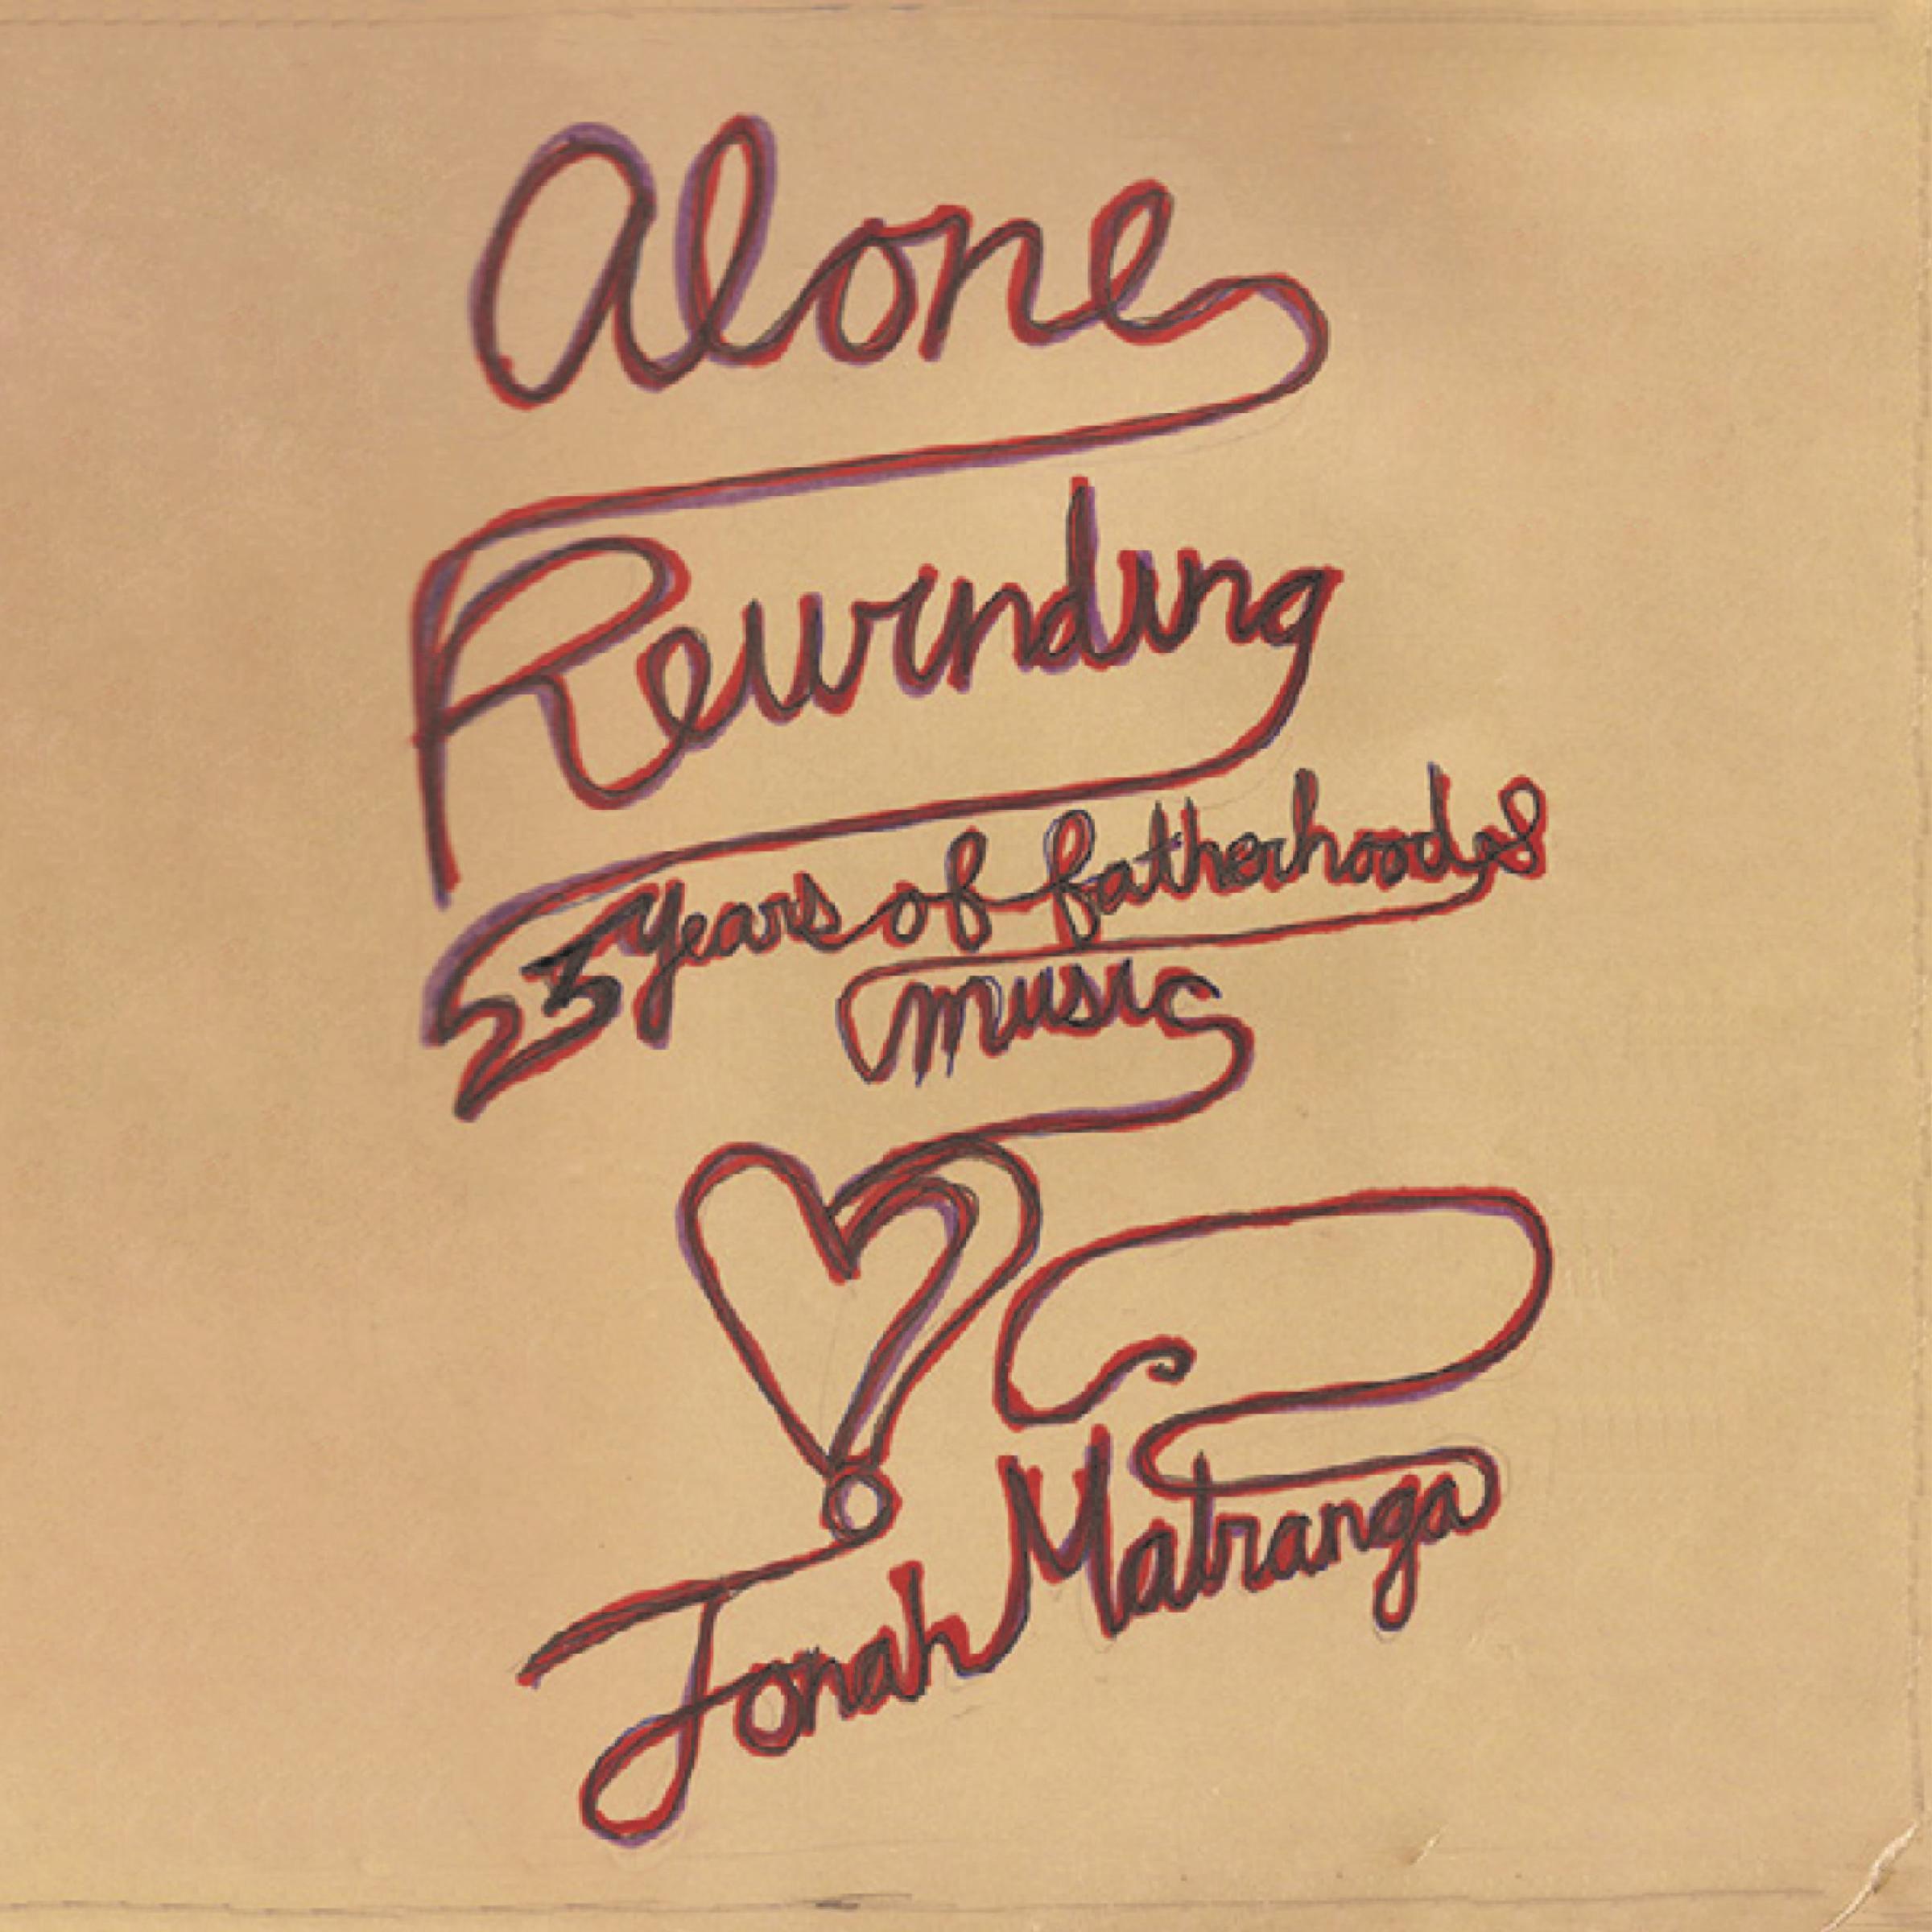 Alone
Rewinding
23 years of fatherhood &
music
Jonah Matranga